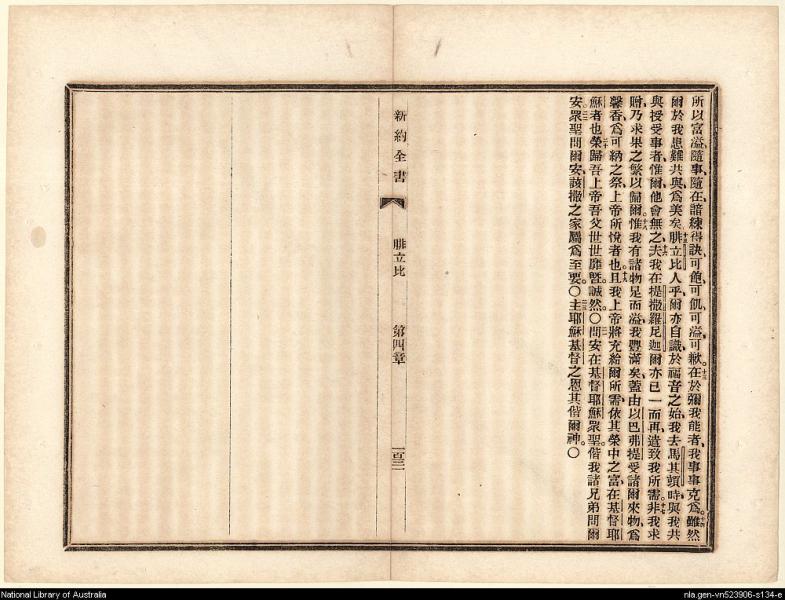 所以富溢、隨事、隨在、諳練得訣、可飽、可飢、可溢、可歉。在於彌我能者、我事事克爲。雖然
爾於我患難共與、爲美矣。腓立比人乎、爾亦自識、於福音之始、我去馬其頓時、與我共
與授受事者、惟爾、他會無之。夫我在提撒羅尼迦、爾亦已一而再遣致我所需。非我求
贈、乃求果之繁以歸爾。惟我有諸物、足而溢、我豐滿矣、蓋由以巴弗提受諸爾來物、爲
馨香、爲可納之祭、上帝所悅者也。且我上帝將充給爾所需、依其榮中之富、在基督耶
穌者也。榮歸吾上帝吾父、世世靡曁、誠然。○問安在基督耶穌眾聖。偕我諸兄弟問爾
安。眾聖問爾安、該撒之家屬爲至要。○主耶穌基督之恩、其偕爾神。○
新約全書
腓立比
第四章
一百三二
National Library of Australia
nla.gen-vn523906-s134-e